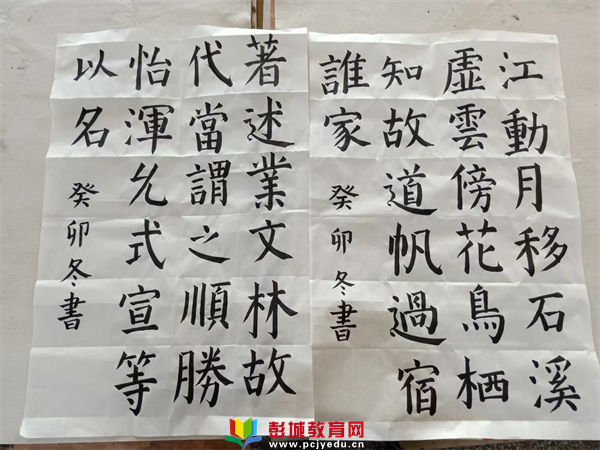 江動月移石溪
虛雲傍花鳥栖
知故道帆過宿
誰家
癸卯冬書
著述業文林故
代當謂之順勝
怡渾允式宣等
以名
癸卯冬書
彭城教育网
www.pcjyedu.cn